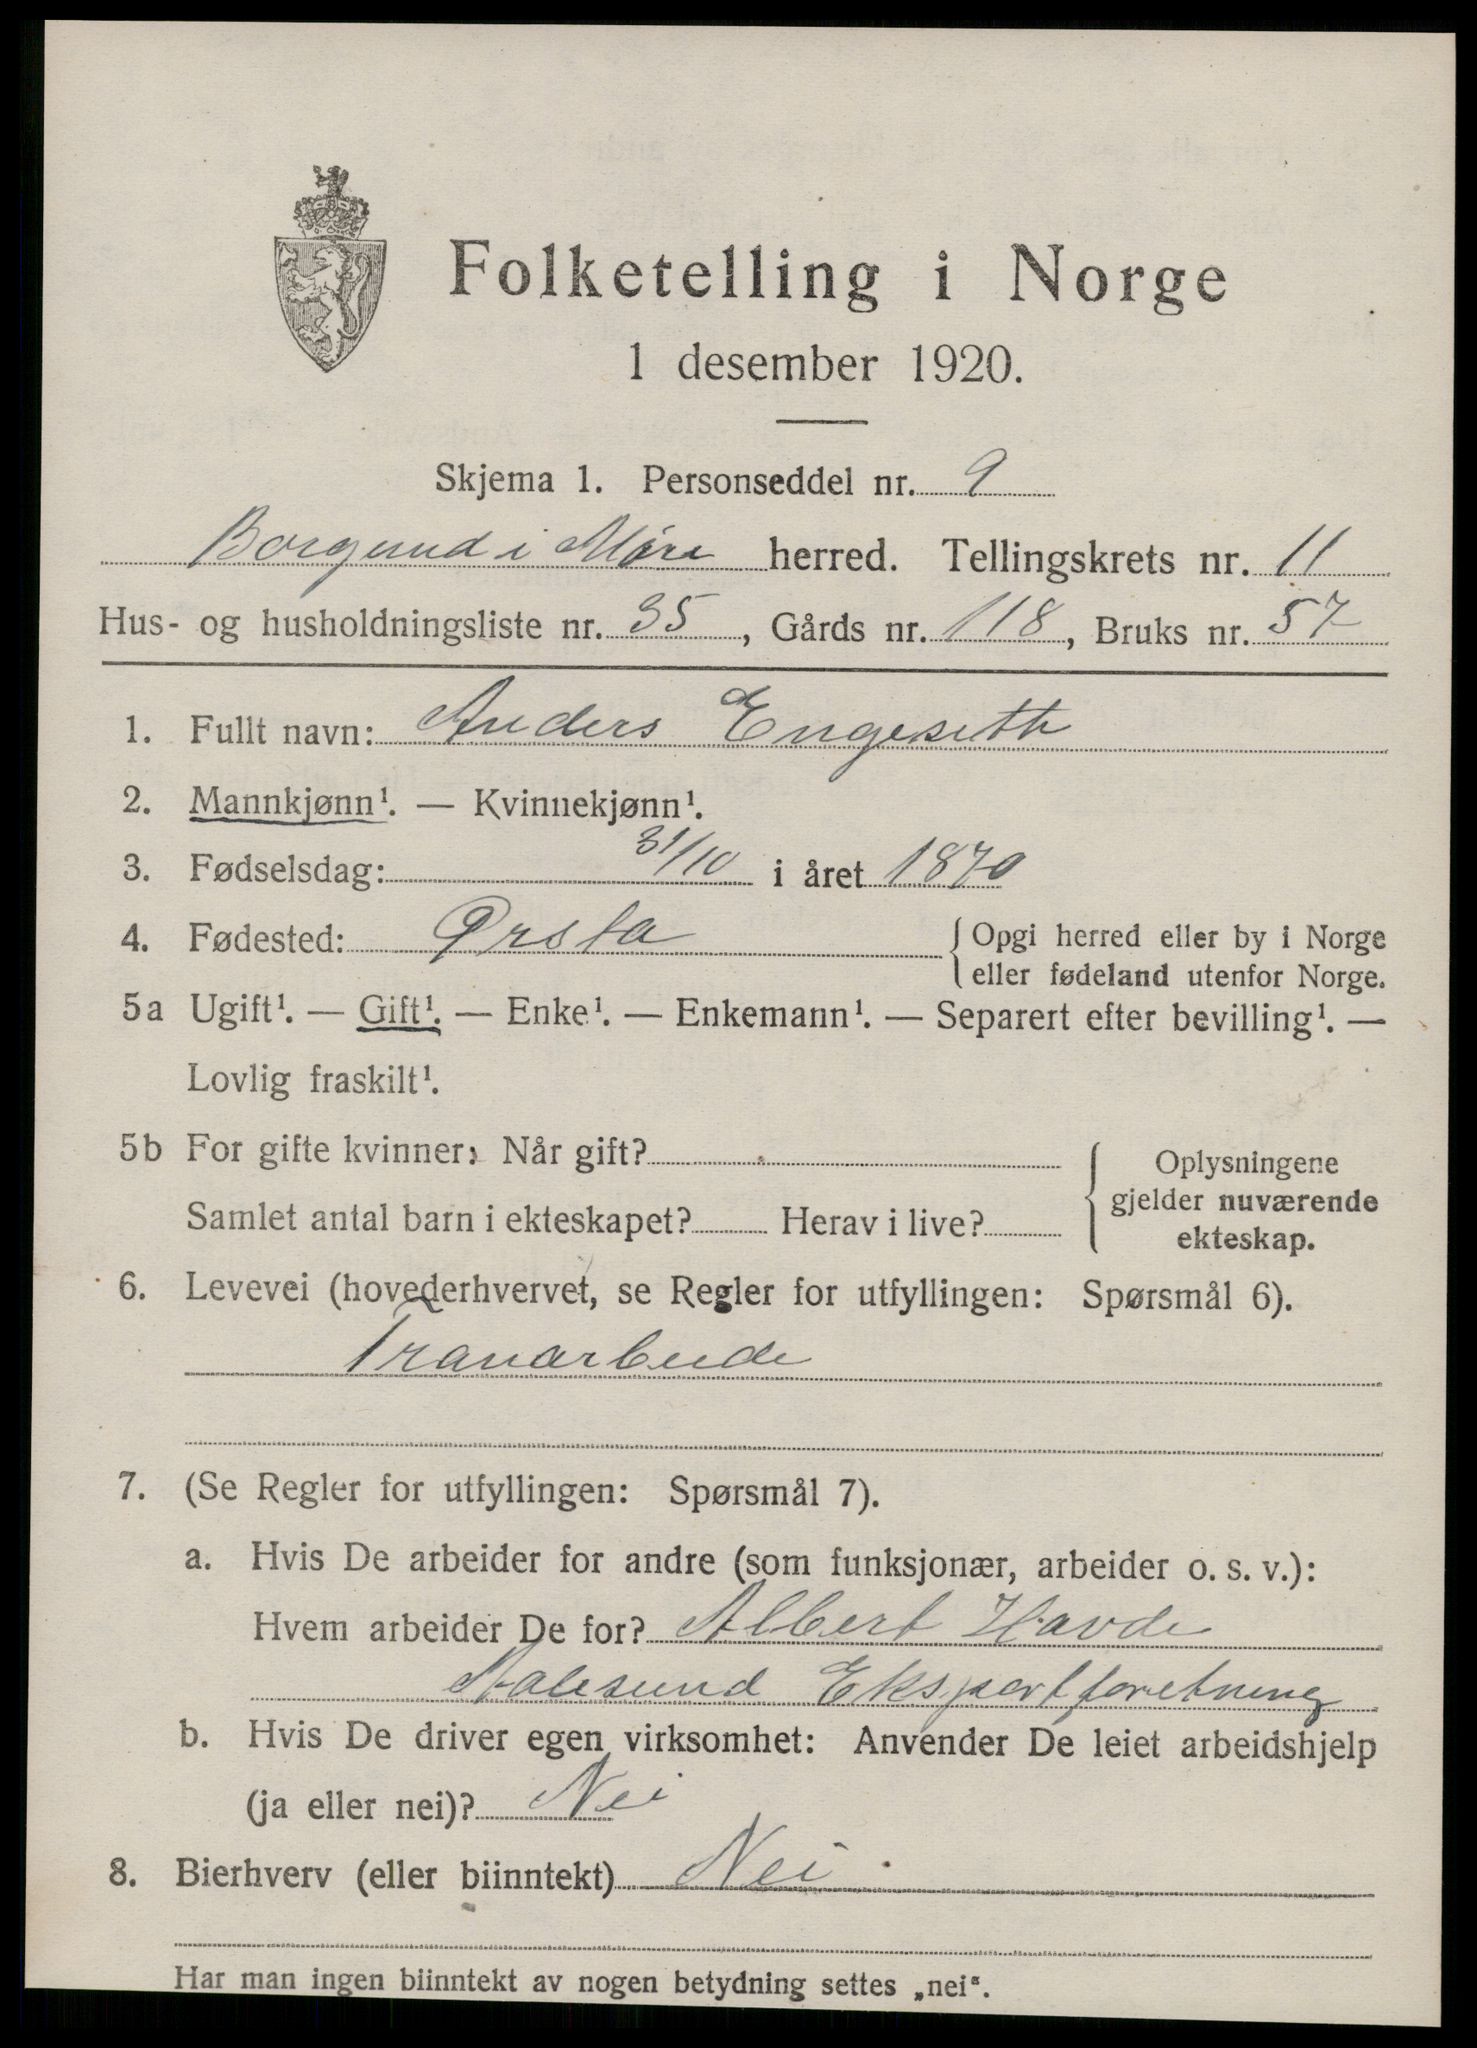 Folketelling i Norge
1 desember 1920.
Skjema 1. Personseddel nr. 9
Borgund i Møre herred. Tellingskrets nr. 11
Hus- og husholdningsliste nr. 35, Gårds nr. 118, Bruks nr. 57
1. Fullt navn: Anders Engeseth
2. Mannkjønn¹. — Kvinnekjønn¹.
3. Fødselsdag: 31/10 i året 1870
4. Fødested: Ørsta { Opgi herred eller by i Norge
eller fødeland utenfor Norge.
5a Ugift¹. — Gift¹. — Enke¹. — Enkemann¹. — Separert efter bevilling¹. —
Lovlig fraskilt¹.
5b For gifte kvinner: Når gift?
Samlet antal barn i ekteskapet? Herav i live?
{ Oplysningene
gjelder nuværende
ekteskap.
6. Levevei (hovederhvervet, se Regler for utfyllingen: Spørsmål 6).
Tranarbeide
7. (Se Regler for utfyllingen: Spørsmål 7).
a. Hvis De arbeider for andre (som funksjonær, arbeider o. s. v.):
Hvem arbeider De for? Albert Havde
Aalesund Eksportforetning
b. Hvis De driver egen virksomhet: Anvender De leiet arbeidshjelp
(ja eller nei)? Nei
8. Bierhverv (eller biinntekt) Nei
Har man ingen biinntekt av nogen betydning settes „nei“.